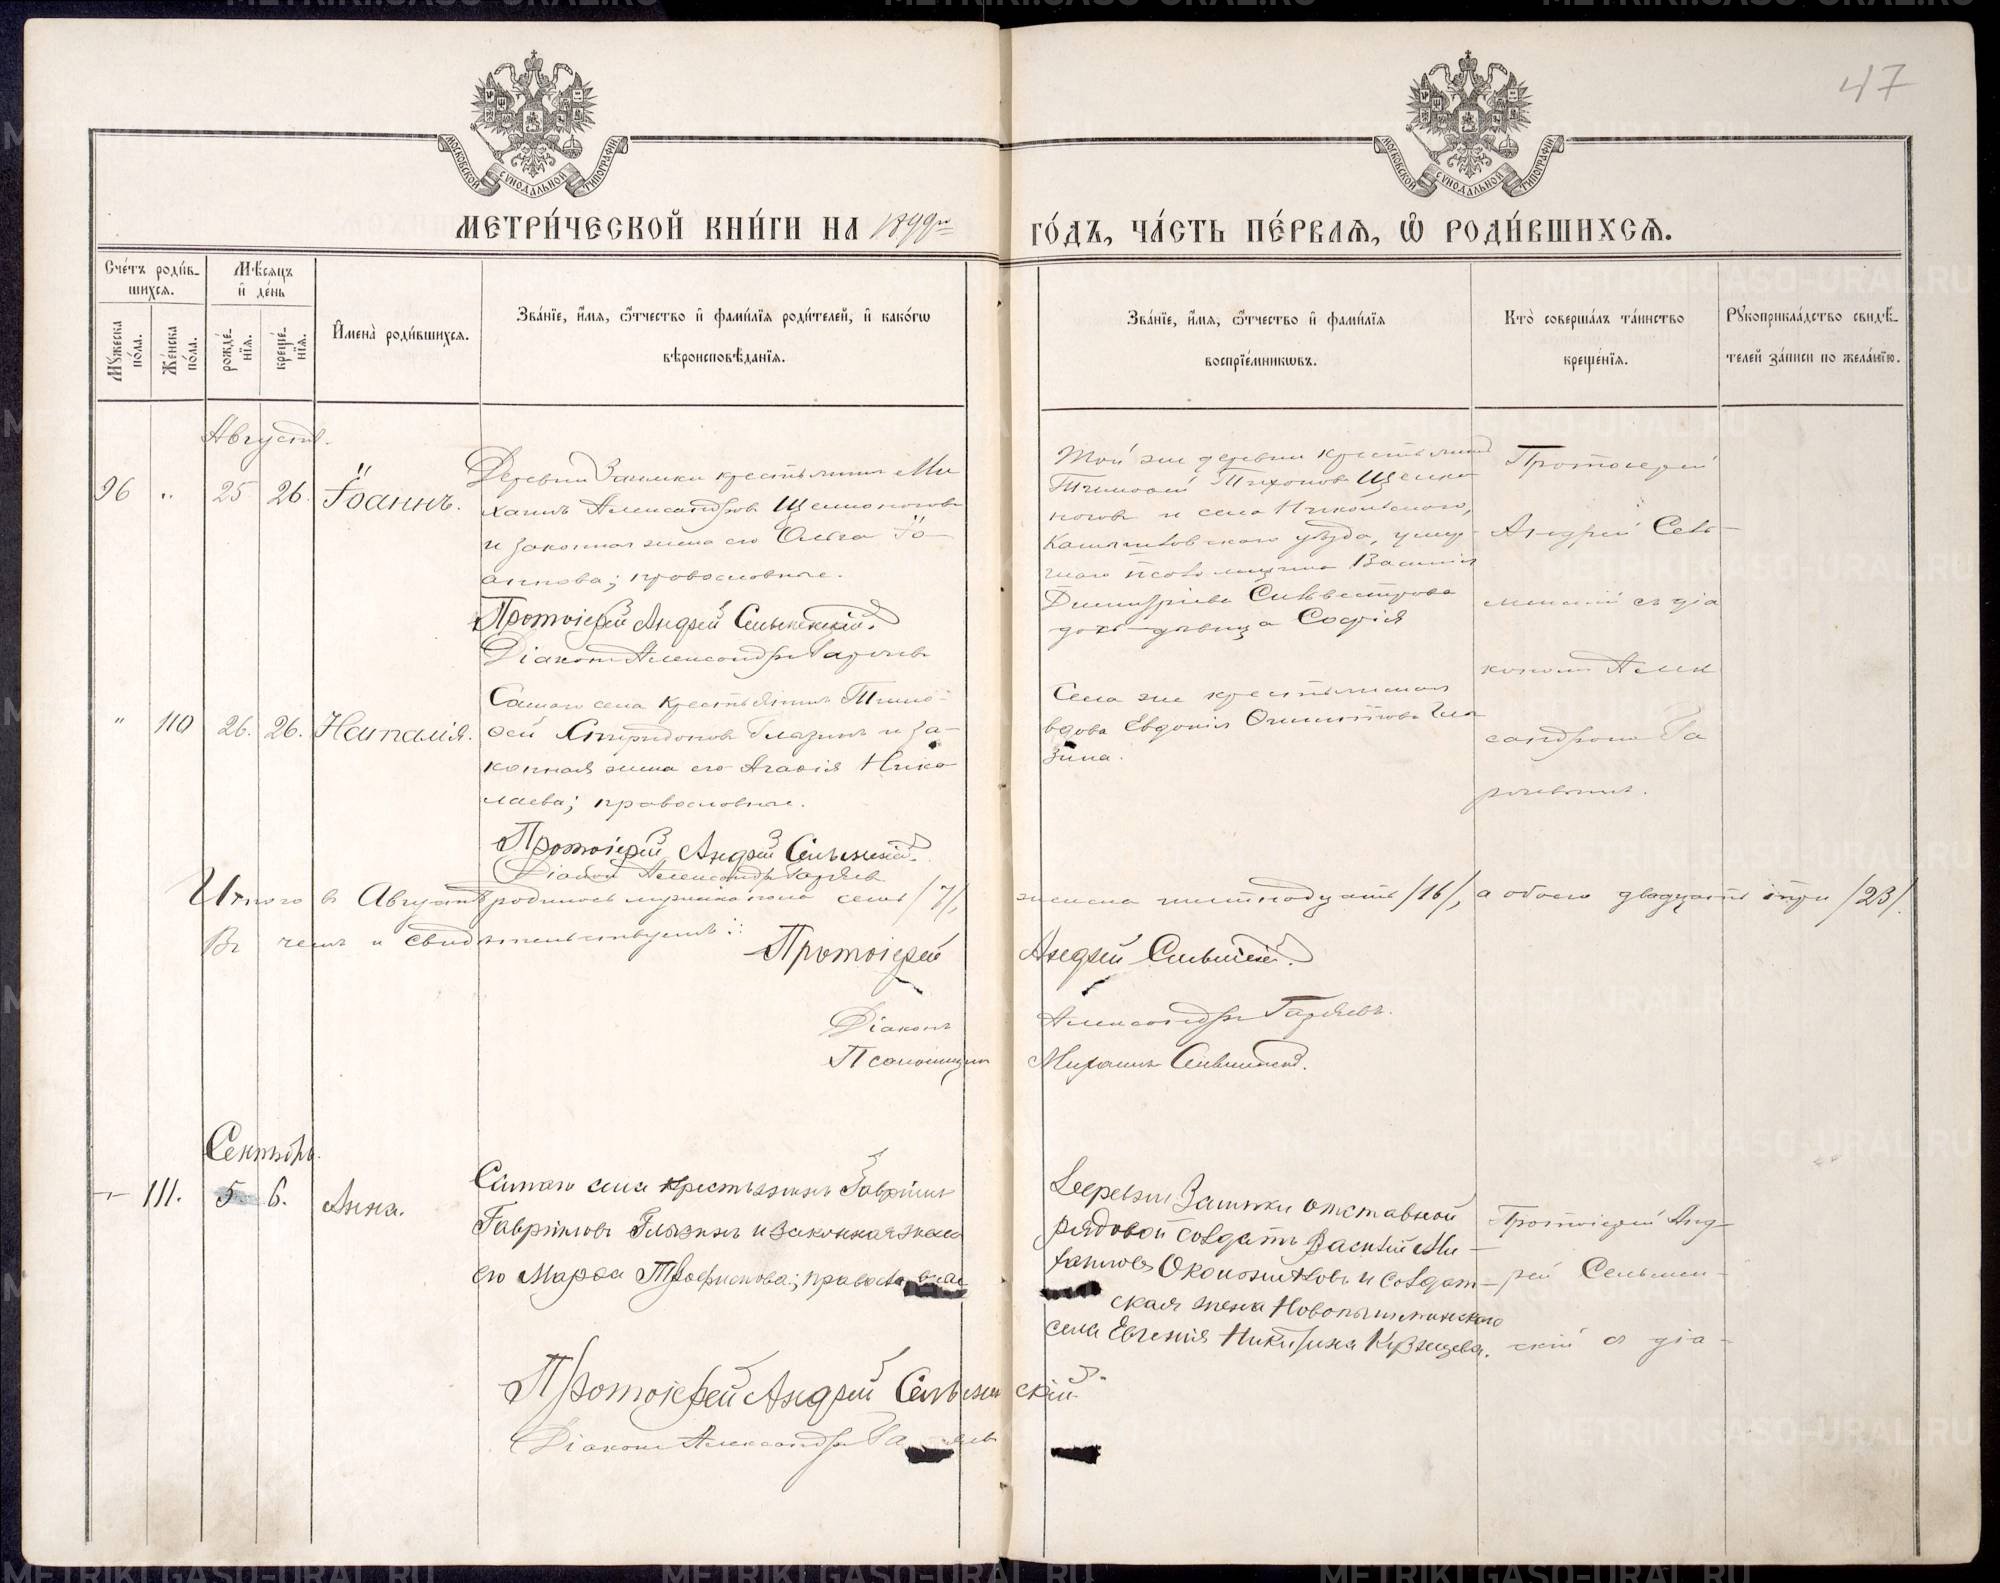 47
МОСКОВСКОЙ СѴНОДАЛЬНОЙ ТИПОГРАФІИ
МОСКОВСКОЙ СѴНОДАЛЬНОЙ ТИПОГРАФІИ
МЕТРИ́ЧЕСКОЙ КНИ́ГИ НА 1899й ГО́ДЪ, ЧА́СТЬ ПЕ́РВАѦ, Ѽ РОДИ́ВШИХСѦ.
Сче́тъ роди́в-
шихсѧ.
Мѣ́сѧцъ
и҆ де́нь
Мꙋ́жеска по́ла.
Же́нска по́ла.
рожде́-нїѧ.
креще́-нїѧ.
И҆мена̀ роди́вшихсѧ.
Зва́нїе, и҆́мѧ, ѻ҆́тчество и҆ фами́лїѧ роди́телей, и҆ како́гѡ
вѣроисповѣ́данїѧ.
Зва́нїе, и҆́мѧ, ѻ҆́тчество и҆ фами́лїѧ
воспрїе́мникѡвъ.
Кто̀ соверша́лъ та́инство
креще́нїѧ.
Рꙋкоприкла́дство свидѣ́-
телей за́писи по жела́нїю.
Августъ.
96 „ 25 26. Іоаннъ.
Деревни Заимки крестьянинъ Ми
хаилъ Александровъ Щелконоговъ
и законная жена его Ольга Іо-
аннова; православные.
Протоіерей Андрей Сельменскій.
Діаконъ Александръ Гаряевъ
Той же деревни крестьянинъ
Тимофей Тихоновъ Щелко
ноговъ и села Никольскаго,
Камышловскаго уѣзда, умер-
шаго псаломщика Василія
Димитріева Сильвестрова
дочь-дѣвица Софія
Протоіерей
Андрей Сель-
менскій съ діа
кономъ Алек
сандромъ Га
ряевымъ.
„ 110 26. 26. Наталія.
Самаго села крестьянинъ Тимо-
фей Спиридоновъ Глазинъ и за-
конная жена его Агафія Нико
лаева; православные.
Протоіерей Андрей Сельменскій.
Діаконъ Александръ Гаряевъ
Села же крестьянская
вдова Евдокія Гла
зина.
Итого въ Августѣ родилось мужеска пола семь /7/, женска шестнадцать /16/, а обоего двадцать три /23/.
Въ чемъ и свидѣтельствуемъ: Протоіерей Андрей Сельменскій.
Діаконъ Александръ Гаряевъ.
Псаломщикъ Михаилъ Сельменскій.
Сентябрь.
111. 5 6. Анна.
Самаго села крестьянинъ Гавріилъ
Гавріиловъ Глазинъ и законная жена
его Марфа Трофимова; православные
Протоіерей Андрей Сельменскій.
Діаконъ Александръ Гаряевъ
Деревни Заимки отставной
рядовой солдатъ Василій Ми-
хаиловъ и солдат-
ская жена Новопышминскаго
села Евгенія Никитина Кузнецова.
Протоіерей Анд-
рей Сельмен-
скій съ діа-
METRIKI.GASO-URAL.RU